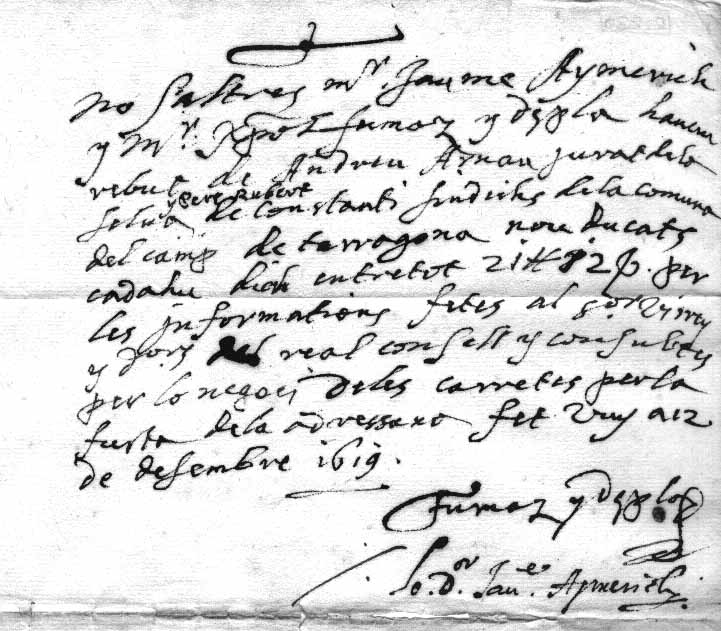 No saltres mr. Jaume Aymerich
y mr. Xpol fumaz y despla havem
rebut de Andreu Aznau jurat dela
y Pere Rubert
selva de Constanti sindichs dela comuna
del camp de tarragona nou ducats
cadahu dich entretot 21 ℔ 12 ß. per
les informations fetes al sor. virrey
y dors del real consell y consultes
per lo negoci deles carretes per la
fusta dela adressana fet vuy a 12
de desembre 1619.
Fumaz y despla
Lo. dor. Jaue. Aymerich